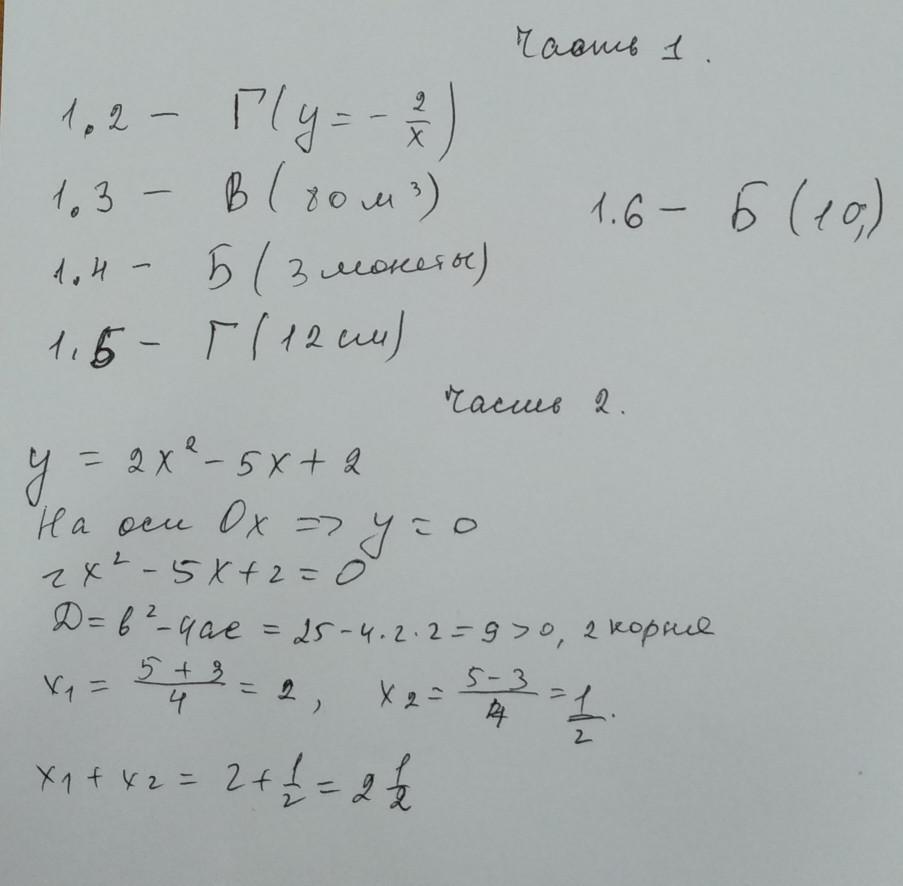 Часть 1.
1.2 – Г(y = - 2/x)
1.3 – В (80 м³)
1.4 – Б (3 монеты)
1.5 – Г (12 см)
1.6 – Б (10;)
Часть 2.
y = 2x² - 5x + 2
На оси Ox => y = 0
2x² - 5x + 2 = 0
D = b² - 4ac = 25 - 4·2·2 = 9 > 0, 2 корня
x₁ = (5 + 3)/4 = 2, x₂ = (5 - 3)/4 = 1/2.
x₁ + x₂ = 2 + 1/2 = 2 1/2